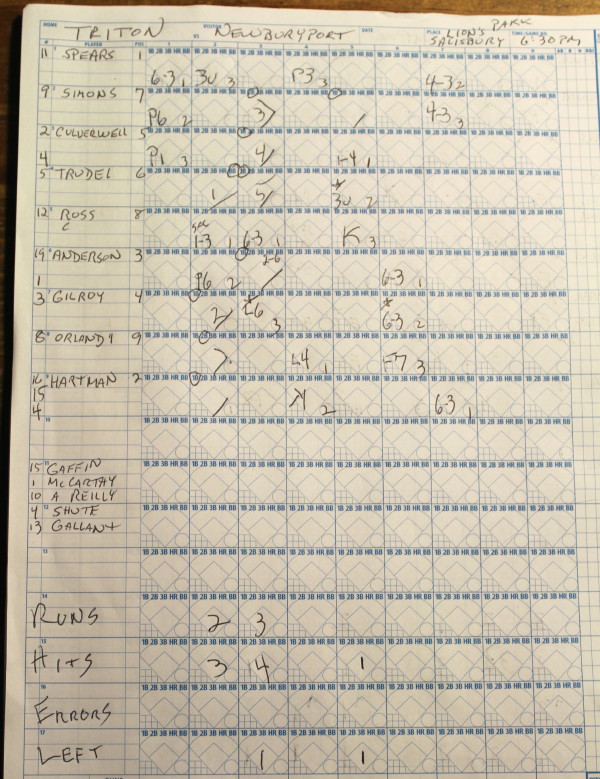 HOME TRITON VISITOR NEWBURYPORT DATE PLACE LION'S PARK SALISBURY TIME/GAME NO. 6:30 PM
# PLAYER POS 1 2 3 4 5 6 7 8 9
11 SPEARS 1 6-3 1 3U 3 P3 3 4-3 2
9 SIMONS 7 P6 2 3 4-3 3
2 CULVERWELL 5 P1 3 4 1-4 1
4
5 TRUDEL 6 1 5 3U 2
12 ROSS 8 SAC 1-3 1 6-3 1 K 3
C
19 ANDERSON 3 P6 2 2-6 6-3 1
1
3 GILROY 4 2 6 3 6-3 2
8 ORLANDI 9 L4 1 F7 3
16 HARTMAN 2 K 2 6-3 1
15
4
15 GAFFIN
1 MCCARTHY
10 A REILLY
4 SHUTE
13 GALLANT
RUNS 2 3
HITS 3 4 1
ERRORS
LEFT 1 1